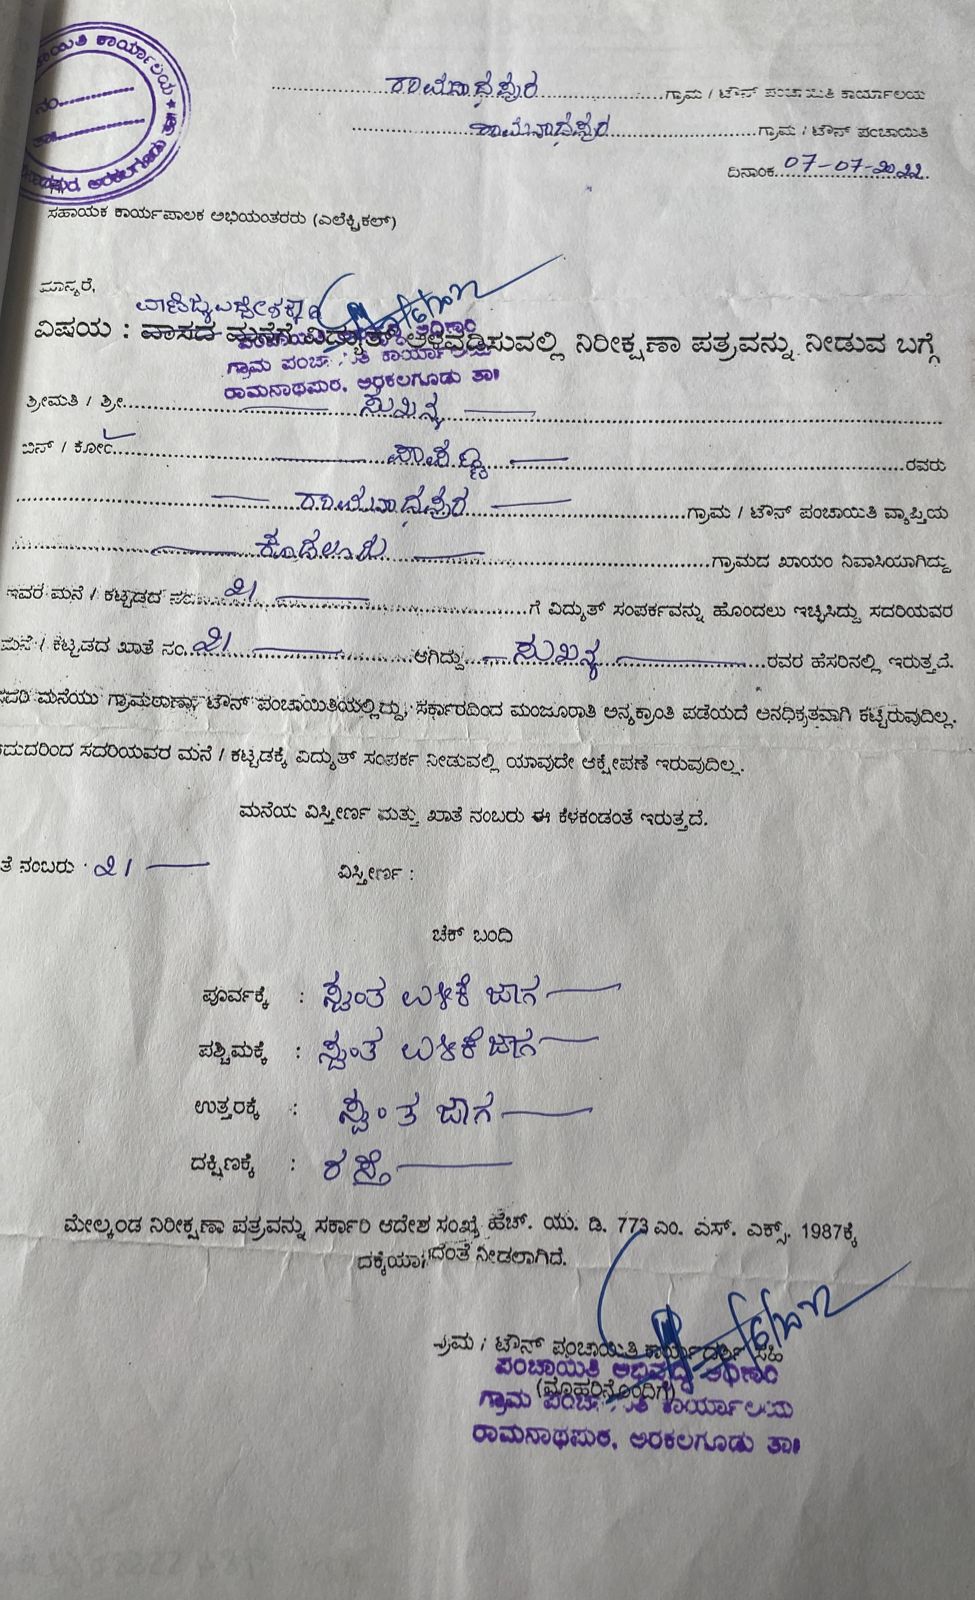 ಕಾರ್ಯಾಲಯ
ನಂ
ತಾ॥
ಅರಕಲಗೂಡು ತಾ॥
ರಾಮನಾಥಪುರ ಗ್ರಾಮ / ಟೌನ್ ಪಂಚಾಯಿತಿ ಕಾರ್ಯಾಲಯ
ರಾಮನಾಥಪುರ ಗ್ರಾಮ / ಟೌನ್ ಪಂಚಾಯಿತಿ
ದಿನಾಂಕ 07-07-2022
ಸಹಾಯಕ ಕಾರ್ಯಪಾಲಕ ಅಭಿಯಂತರರು (ಎಲೆಕ್ಟ್ರಿಕಲ್)
ಮಾನ್ಯರೆ,
ವಿಷಯ : ವಾಸದ ಮನೆಗೆ ವಿದ್ಯುತ್ ಅಳವಡಿಸುವಲ್ಲಿ ನಿರೀಕ್ಷಣಾ ಪತ್ರವನ್ನು ನೀಡುವ ಬಗ್ಗೆ
ಗ್ರಾಮ ಪಂಚಾಯಿತಿ ಕಾರ್ಯಾಲಯ
ರಾಮನಾಥಪುರ, ಅರಕಲಗೂಡು ತಾ॥
ಶ್ರೀಮತಿ / ಶ್ರೀ ಸುಖನ್ಯ
ಬಿನ್ / ಕೋಂ ರವರು
ರಾಮನಾಥಪುರ ಗ್ರಾಮ / ಟೌನ್ ಪಂಚಾಯಿತಿ ವ್ಯಾಪ್ತಿಯ
ಕೊಡಲೂರು ಗ್ರಾಮದ ಖಾಯಂ ನಿವಾಸಿಯಾಗಿದ್ದು
ಇವರ ಮನೆ / ಕಟ್ಟಡದ ನಂ. 21 ಗೆ ವಿದ್ಯುತ್ ಸಂಪರ್ಕವನ್ನು ಹೊಂದಲು ಇಚ್ಛಿಸಿದ್ದು ಸದರಿಯವರ
ಮನೆ / ಕಟ್ಟಡದ ಖಾತೆ ನಂ. 21 ಆಗಿದ್ದು ಸುಖನ್ಯ ರವರ ಹೆಸರಿನಲ್ಲಿ ಇರುತ್ತದೆ.
ಸದರಿ ಮನೆಯು ಗ್ರಾಮಠಾಣಾ, ಟೌನ್ ಪಂಚಾಯಿತಿಯಲ್ಲಿದ್ದು, ಸರ್ಕಾರದಿಂದ ಮಂಜೂರಾತಿ ಅನ್ಯಕ್ರಾಂತಿ ಪಡೆಯದೆ ಅನಧಿಕೃತವಾಗಿ ಕಟ್ಟಿರುವುದಿಲ್ಲ.
ಆದುದರಿಂದ ಸದರಿಯವರ ಮನೆ / ಕಟ್ಟಡಕ್ಕೆ ವಿದ್ಯುತ್ ಸಂಪರ್ಕ ನೀಡುವಲ್ಲಿ ಯಾವುದೇ ಆಕ್ಷೇಪಣೆ ಇರುವುದಿಲ್ಲ.
ಮನೆಯ ವಿಸ್ತೀರ್ಣ ಮತ್ತು ಖಾತೆ ನಂಬರು ಈ ಕೆಳಕಂಡಂತೆ ಇರುತ್ತದೆ.
ತೆ ನಂಬರು : 21 ವಿಸ್ತೀರ್ಣ :
ಚೆಕ್ ಬಂದಿ
ಪೂರ್ವಕ್ಕೆ : ಸ್ವಂತ ಬಳಕೆ ಜಾಗ
ಪಶ್ಚಿಮಕ್ಕೆ : ಸ್ವಂತ ಬಳಕೆ ಜಾಗ
ಉತ್ತರಕ್ಕೆ : ಸ್ವಂತ ಜಾಗ
ದಕ್ಷಿಣಕ್ಕೆ : ರಸ್ತೆ
ಮೇಲ್ಕಂಡ ನಿರೀಕ್ಷಣಾ ಪತ್ರವನ್ನು ಸರ್ಕಾರಿ ಆದೇಶ ಸಂಖ್ಯೆ ಹೆಚ್. ಯು. ಡಿ. 773 ಎಂ. ಎಸ್. ಎಕ್ಸ್. 1987ಕ್ಕೆ
ದಕ್ಕೆಯಾಗದಂತೆ ನೀಡಲಾಗಿದೆ.
ಗ್ರಾಮ / ಟೌನ್ ಪಂಚಾಯಿತಿ ಕಾರ್ಯದರ್ಶಿ ಸಹಿ
ಪಂಚಾಯಿತಿ ಅಭಿವೃದ್ಧಿ ಅಧಿಕಾರಿ
(ಮೊಹರಿನೊಂದಿಗೆ)
ಗ್ರಾಮ ಪಂಚಾಯಿತಿ ಕಾರ್ಯಾಲಯ
ರಾಮನಾಥಪುರ, ಅರಕಲಗೂಡು ತಾ॥